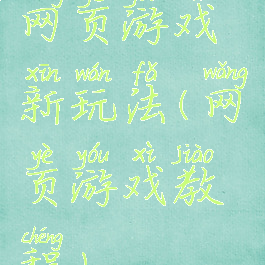 网页游戏
xīn wán fǎ wǎng
新玩法(网
yè yóu xì jiào
页游戏教
chéng
程)